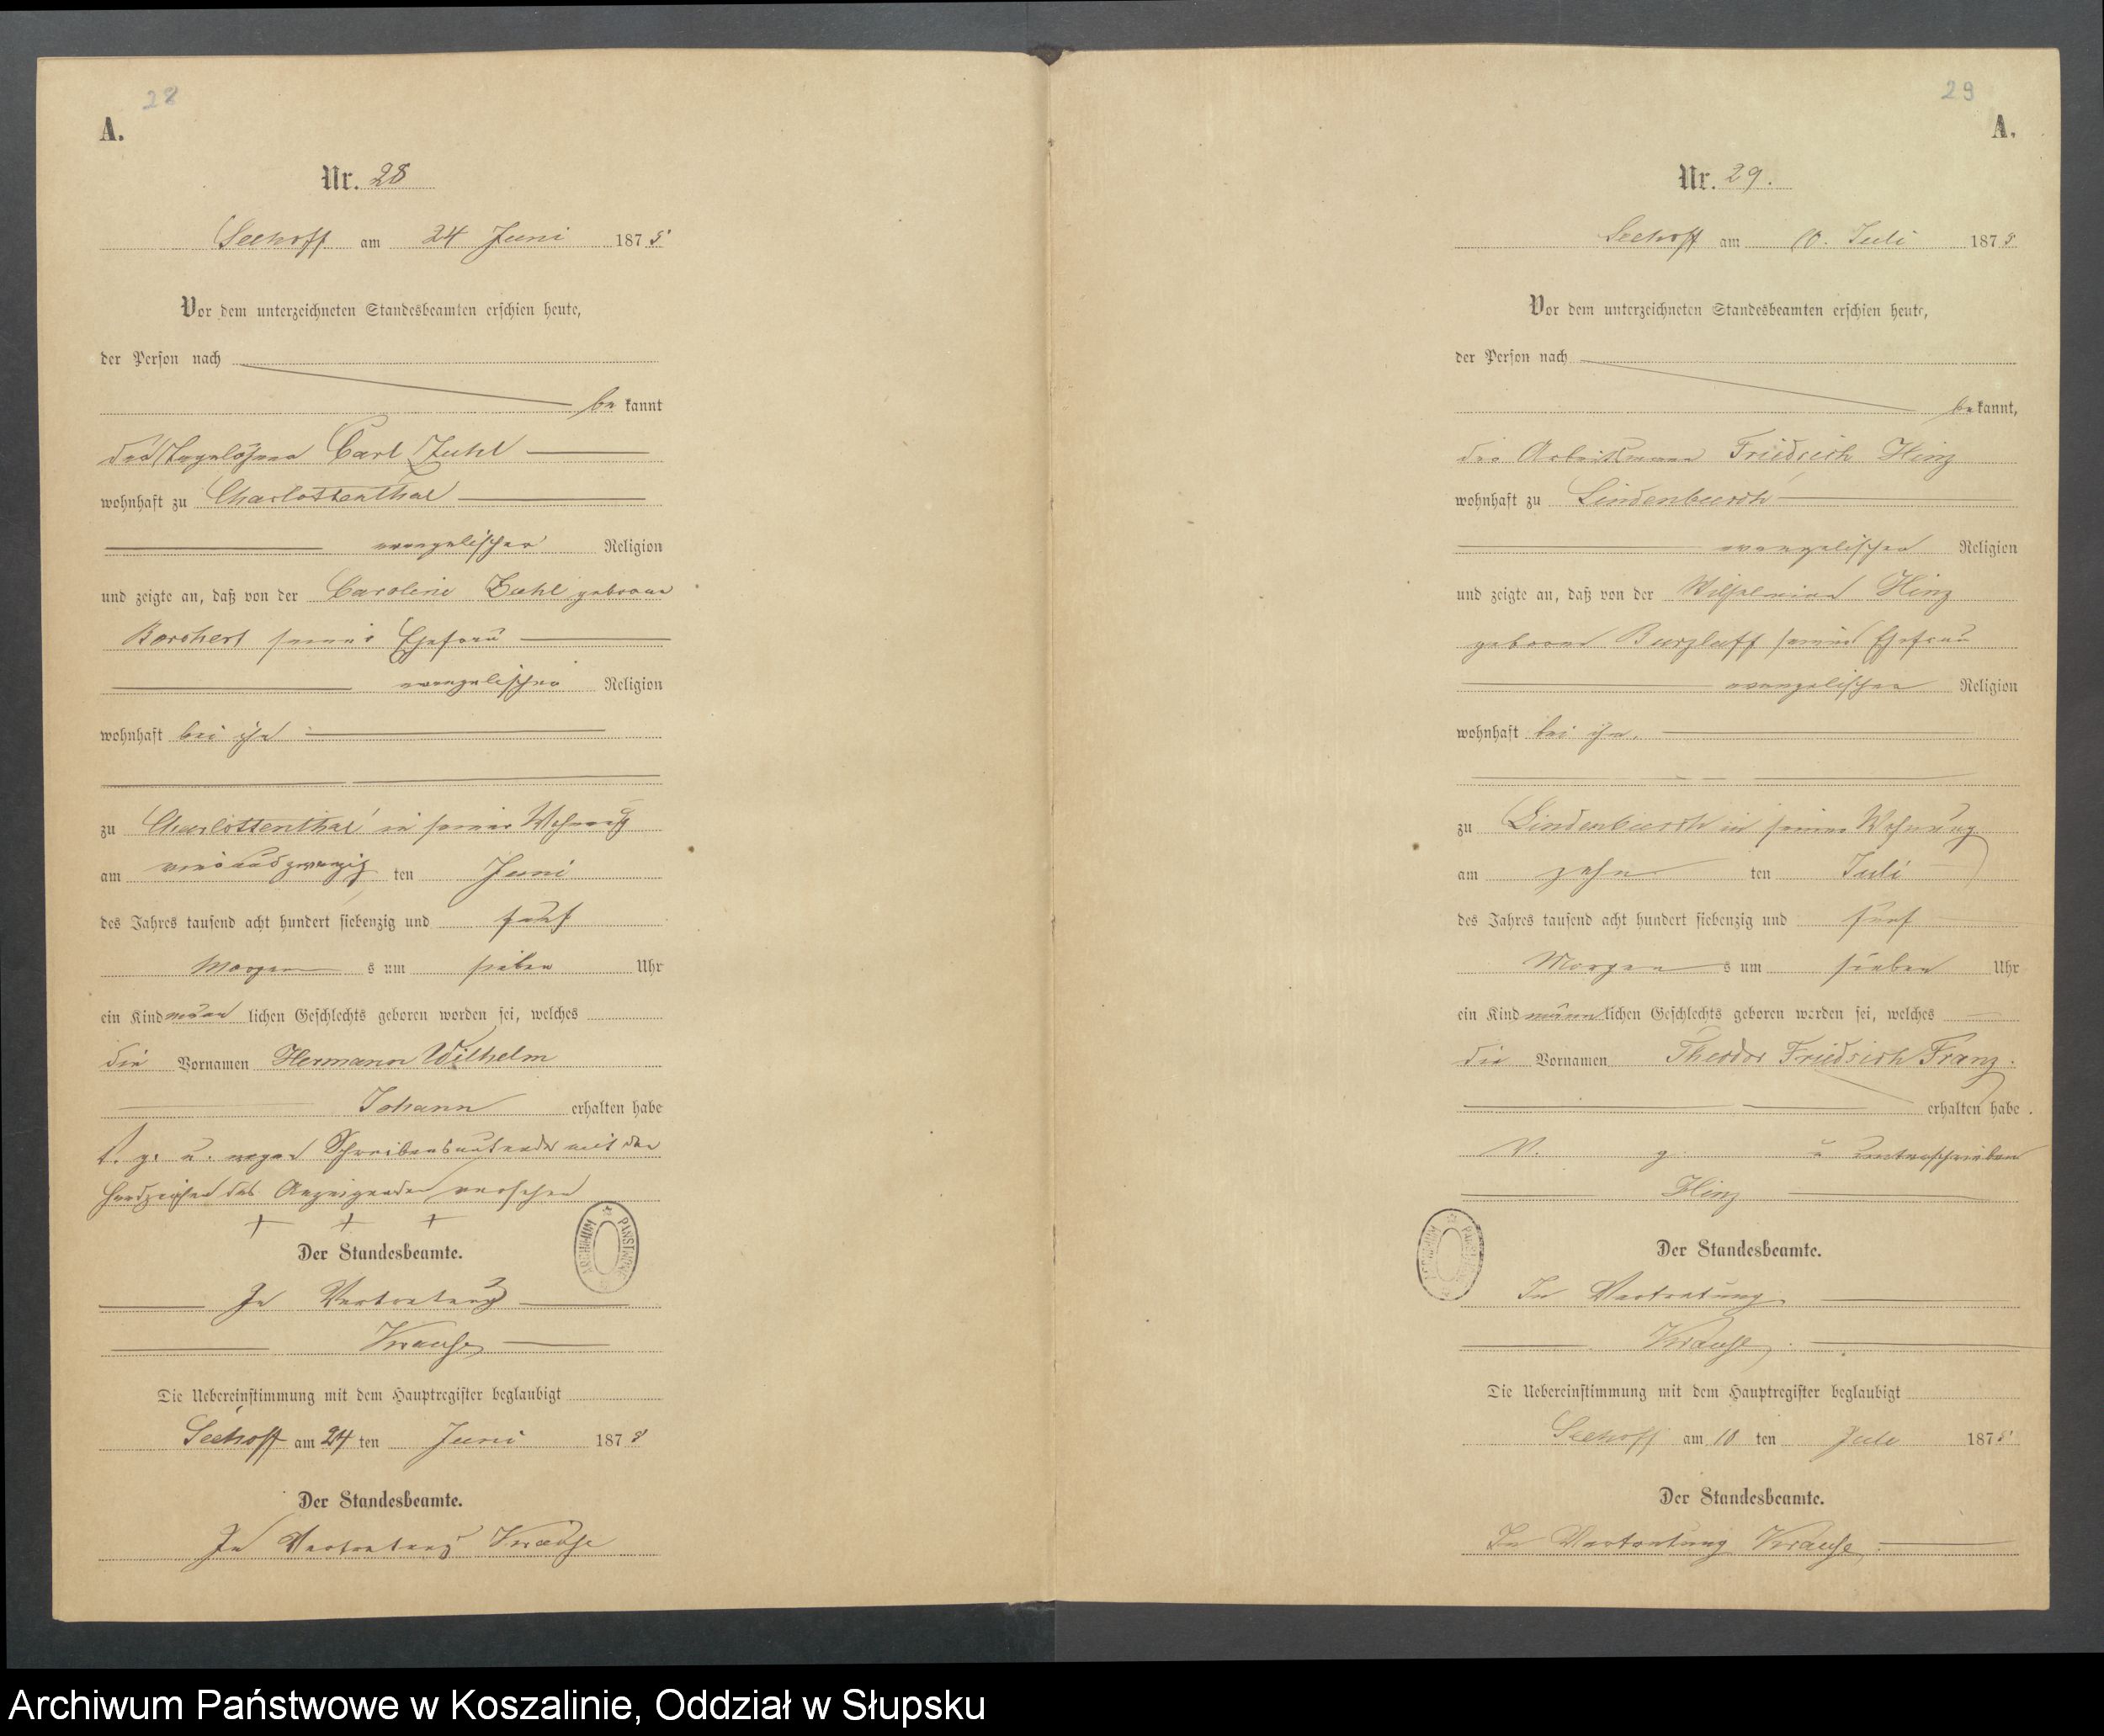 28
A.
Nr. 28
Seehoff am 24 Juni 1875
Vor dem unterzeichneten Standesbeamten erschien heute,
der Person nach
be kannt
der Tagelöhner Carl Zuhl
wohnhaft zu Charlottenthal
evangelischer Religion
und zeigte an, daß von der Caroline Zuhl geborne
Borchert seiner Ehefrau
evangelischer Religion
wohnhaft bei ihm
zu Charlottenthal in seiner Wohnung
am vierundzwanzig ten Juni
des Jahres tausend acht hundert siebenzig und fünf
Morgens um sieben Uhr
ein Kind männlichen Geschlechts geboren worden sei, welches
die Vornamen Hermann Wilhelm
Johann erhalten habe
v. g. u. wegen Schreibensunkunde mit dem
Handzeichen des Anzeigenden versehen
+ + +
Der Standesbeamte.
In Vertretung
Krause
Die Uebereinstimmung mit dem Hauptregister beglaubigt
Seehoff am 24 ten Juni 1875
Der Standesbeamte.
In Vertretung Krause
ARCHIWUM PAŃSTWOWE
29
A.
Nr. 29.
Seehoff am 10. Juli 1875
Vor dem unterzeichneten Standesbeamten erschien heute,
der Person nach
be kannt,
der Arbeitsmann Friedrich Hinz
wohnhaft zu Lindenbusch
evangelischer Religion
und zeigte an, daß von der Wilhelmine Hinz
geborne Burzlaff seiner Ehefrau
evangelischer Religion
wohnhaft bei ihm.
zu Lindenbusch in seiner Wohnung
am zehn ten Juli
des Jahres tausend acht hundert siebenzig und fünf
Morgens um sieben Uhr
ein Kind männlichen Geschlechts geboren worden sei, welches
die Vornamen Theodor Friedrich Franz.
erhalten habe.
V. g. u unterschrieben
Hinz
Der Standesbeamte.
In Vertretung
Krause.
Die Uebereinstimmung mit dem Hauptregister beglaubigt
Seehoff am 10 ten Juli 1875
Der Standesbeamte.
In Vertretung Krause.
Archiwum Państwowe w Koszalinie, Oddział w Słupsku